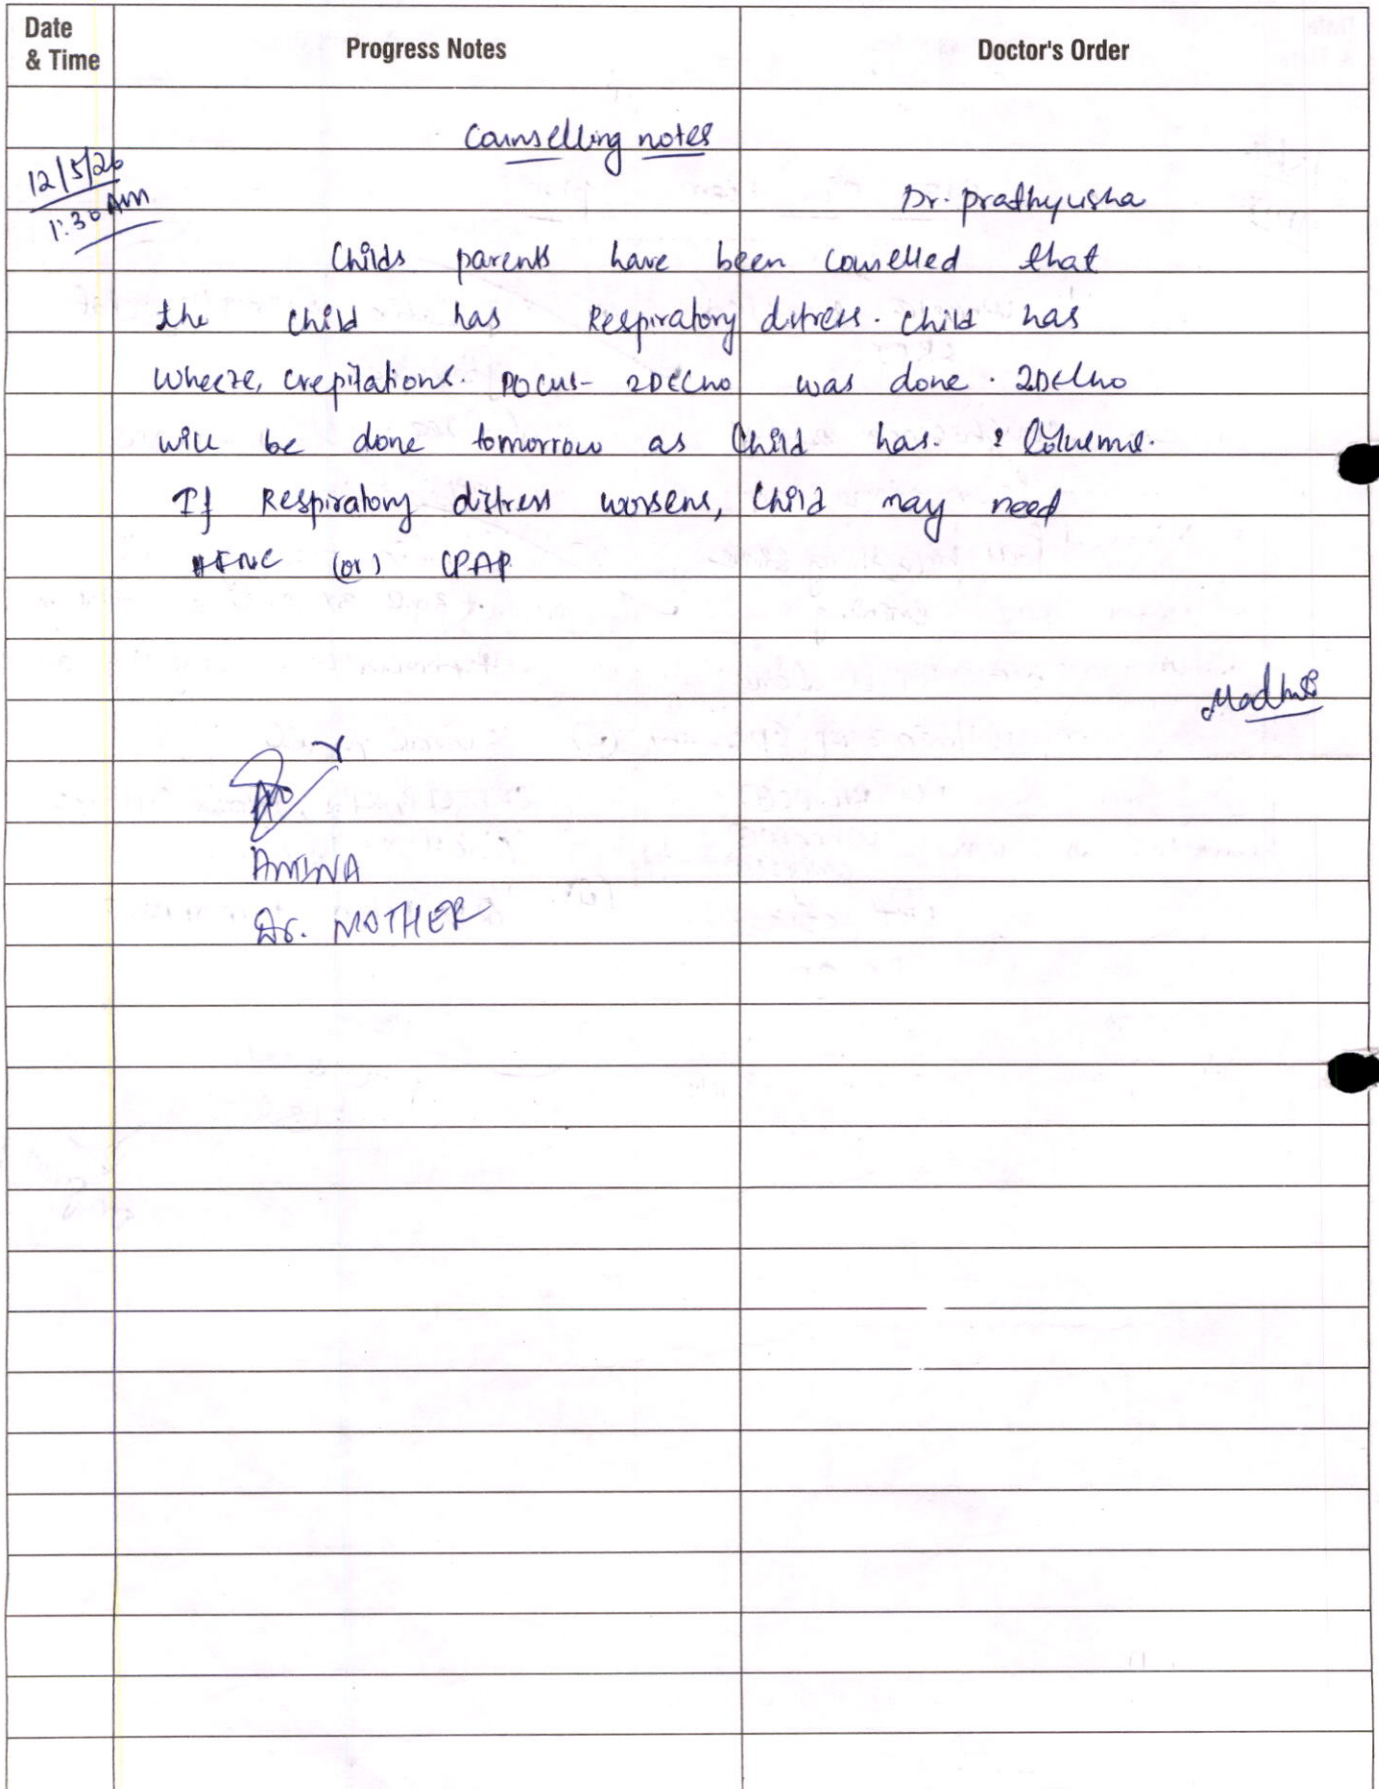 Date & Time
Progress Notes
Doctor's Order
Counselling notes
12/5/26
1:30 AM
Dr. prathyusha
Childs parents have been counselled that
the child has Respiratory distress. Child has
wheeze, crepitations. POCUS- 2DEcho was done. 2DEcho
will be done tomorrow as Child has. ?
If Respiratory distress worsens, Child may need
HFNC (or) CPAP
AMINA
MOTHER